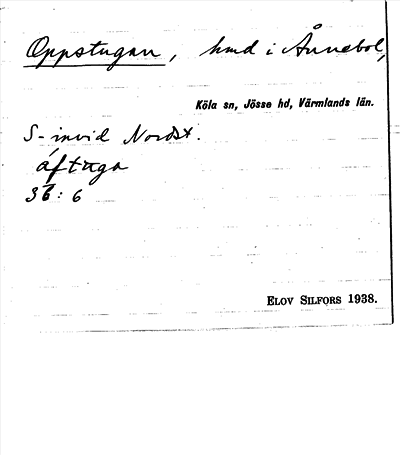 Oppstugan, hmd i Ånnebol,
Köla sn, Jösse hd, Värmlands län.
S-invid Nordst.
åftuga
36:6
ELOV SILFORS 1938.